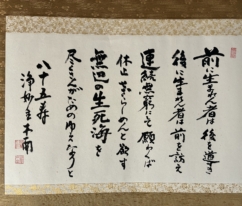 前に生れん者は後を導き
後に生れん者は前を訪え
連続無窮にして願わくば
休止せざらしめんと欲す
無辺の生死海を
尽さんがためのゆえなりと
八十五寿